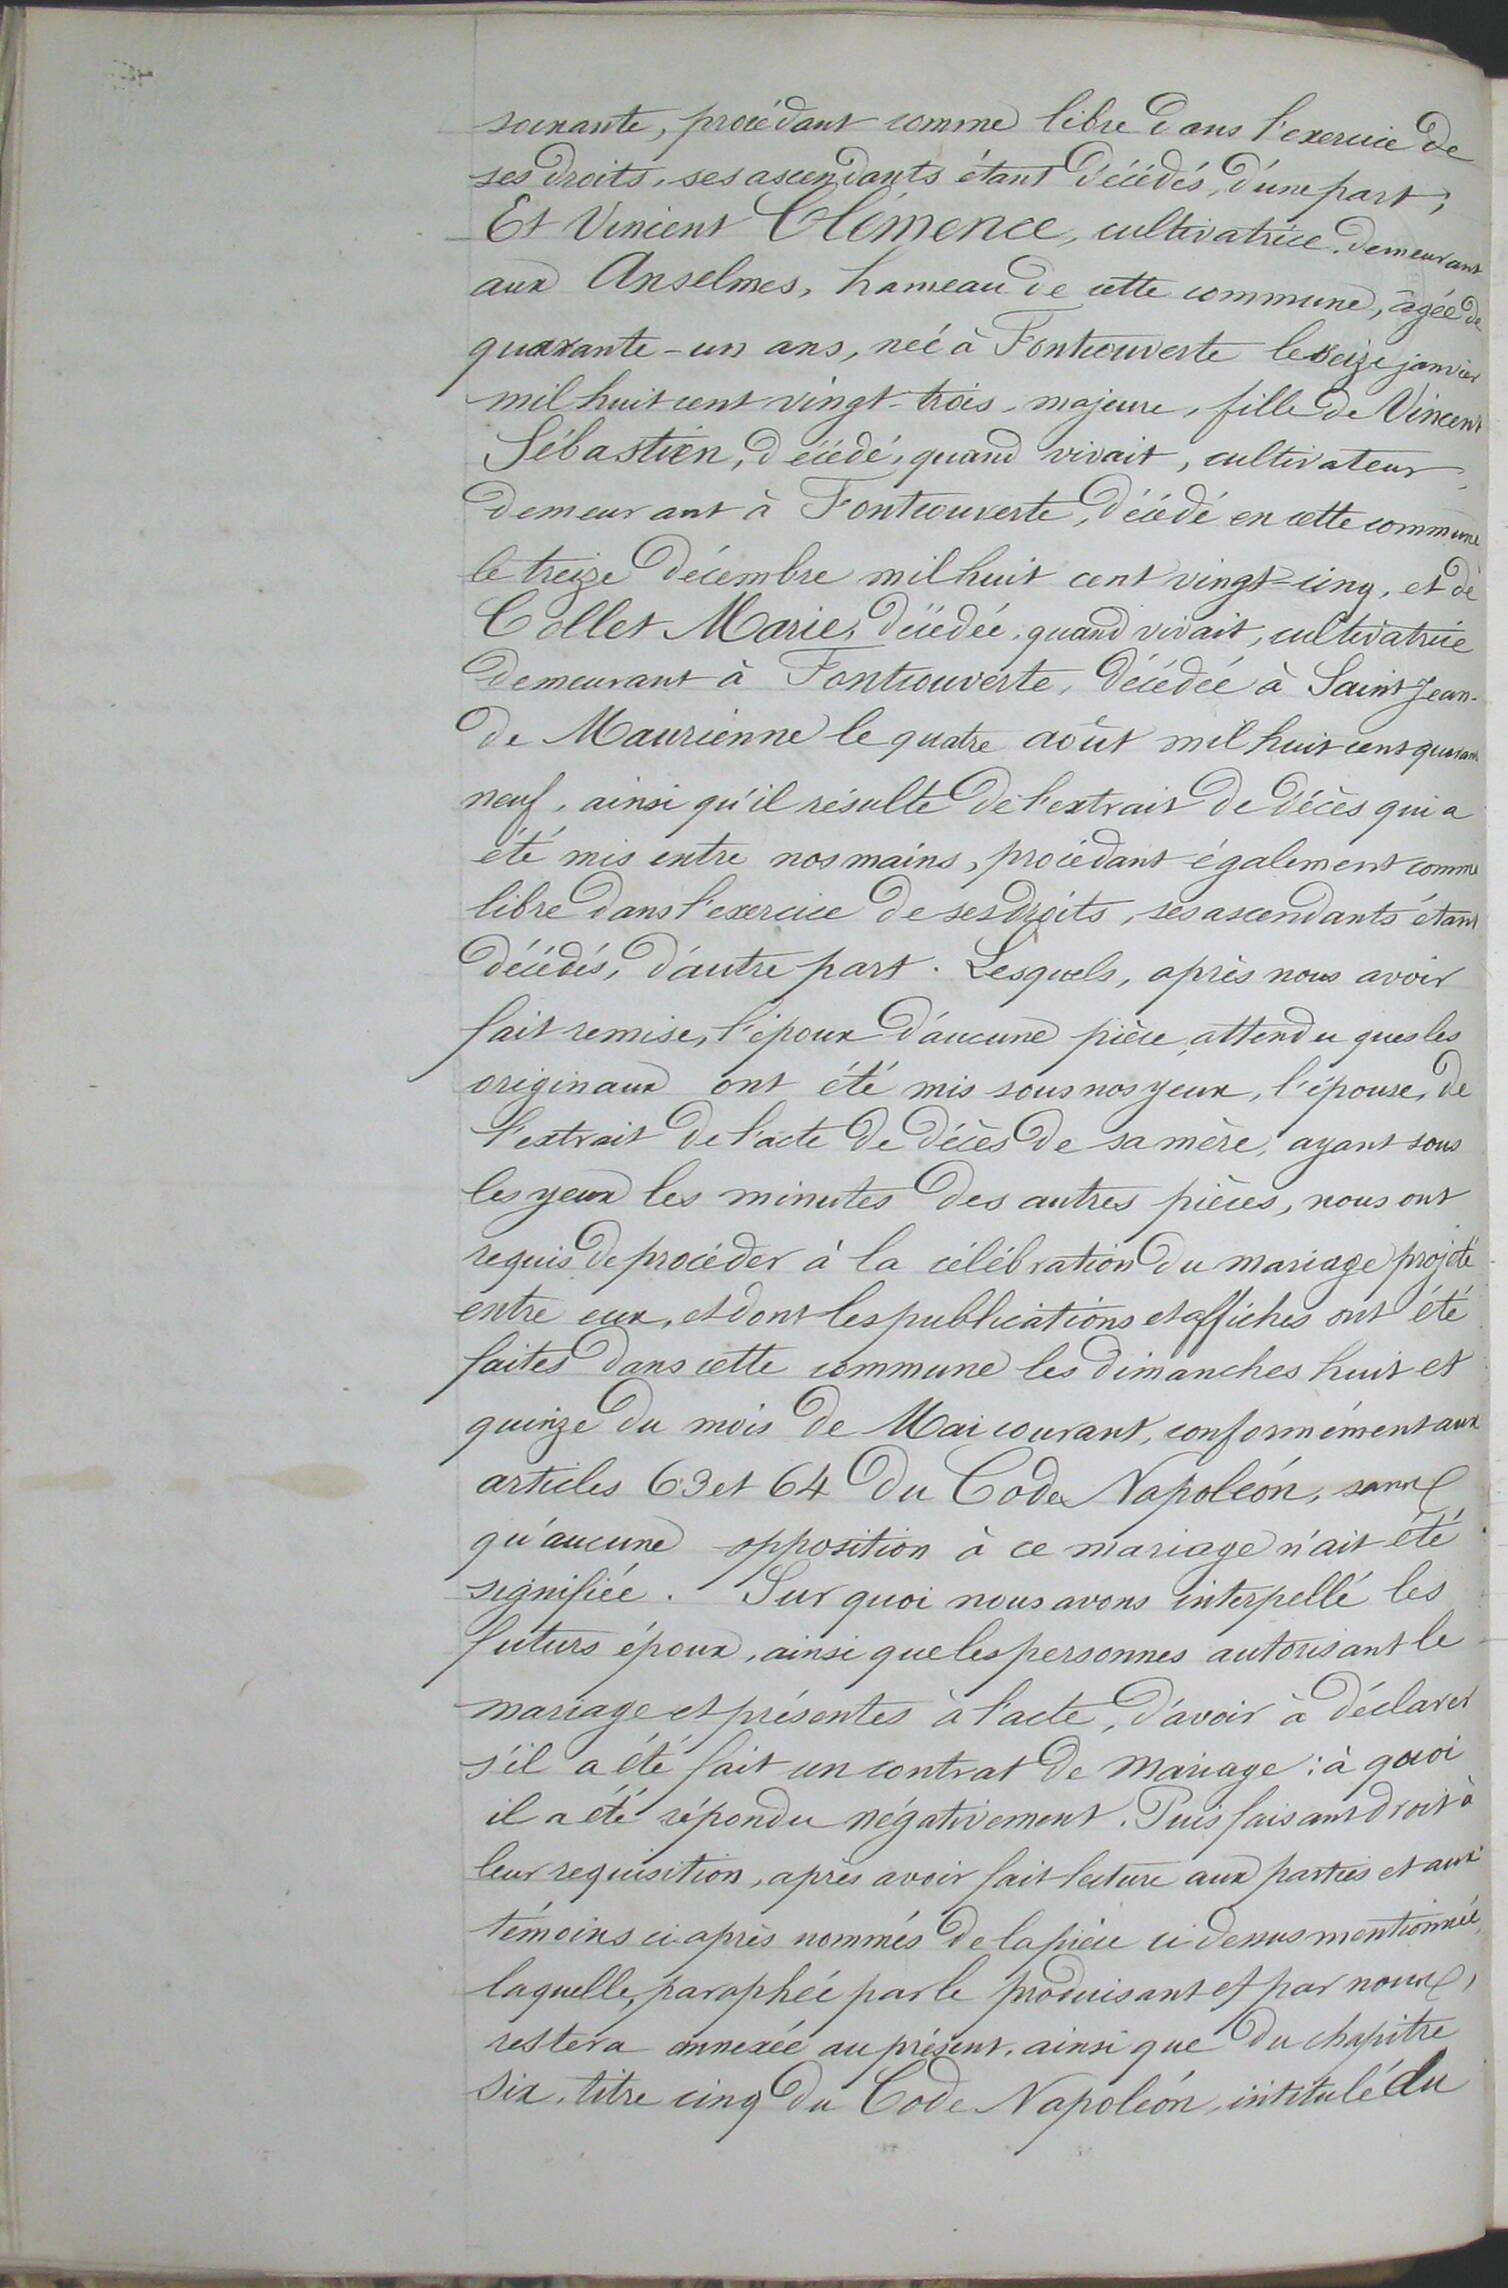 soixante, procédant comme libre dans l'exercice de
ses droits, ses ascendants étant décédés, d'une part;
Et Vincent Clémence, cultivatrice, demeurant
aux Anselmes, hameau de cette commune, âgée de
quarante-un ans, née à Fontcouverte le seize janvier
mil huit cent vingt-trois, majeure, fille de Vincent
Sébastien, décédé, quand vivait, cultivateur,
demeurant à Fontcouverte, décédé en cette commune
le treize décembre mil huit cent vingt-cinq, et de
Collet Marie, décédée, quand vivait, cultivatrice
demeurant à Fontcouverte, décédée à Saint Jean-
de Maurienne le quatre août mil huit cent quarante
neuf, ainsi qu'il résulte de l'extrait de décès qui a
été mis entre nos mains, procédant également comme
libre dans l'exercice de ses droits, ses ascendants étant
décédés, d'autre part. Lesquels, après nous avoir
fait remise, l'époux d'aucune pièce, attendu que les
originaux ont été mis sous nos yeux, l'épouse, de
l'extrait de l'acte de décès de sa mère, ayant sous
les yeux les minutes des autres pièces, nous ont
requis de procéder à la célébration du mariage projeté
entre eux, et dont les publications et affiches ont été
faites dans cette commune les dimanches huit et
quinze du mois de Mai courant, conformément aux
articles 63 et 64 du Code Napoléon, sans
qu'aucune opposition à ce mariage n'ait été
signifiée. Sur quoi nous avons interpellé les
futurs époux, ainsi que les personnes autorisant le
mariage et présentes à l'acte, d'avoir à déclarer
s'il a été fait un contrat de mariage : à quoi
il a été répondu négativement. Puis faisant droit à
leur requisition, après avoir fait lecture aux parties et aux
témoins ci-après nommés de la pièce ci dessus mentionnée,
laquelle, paraphée par le produisant et par nous,
restera annexée au présent, ainsi que du chapitre
six, titre cinq du Code Napoléon, intitulé du